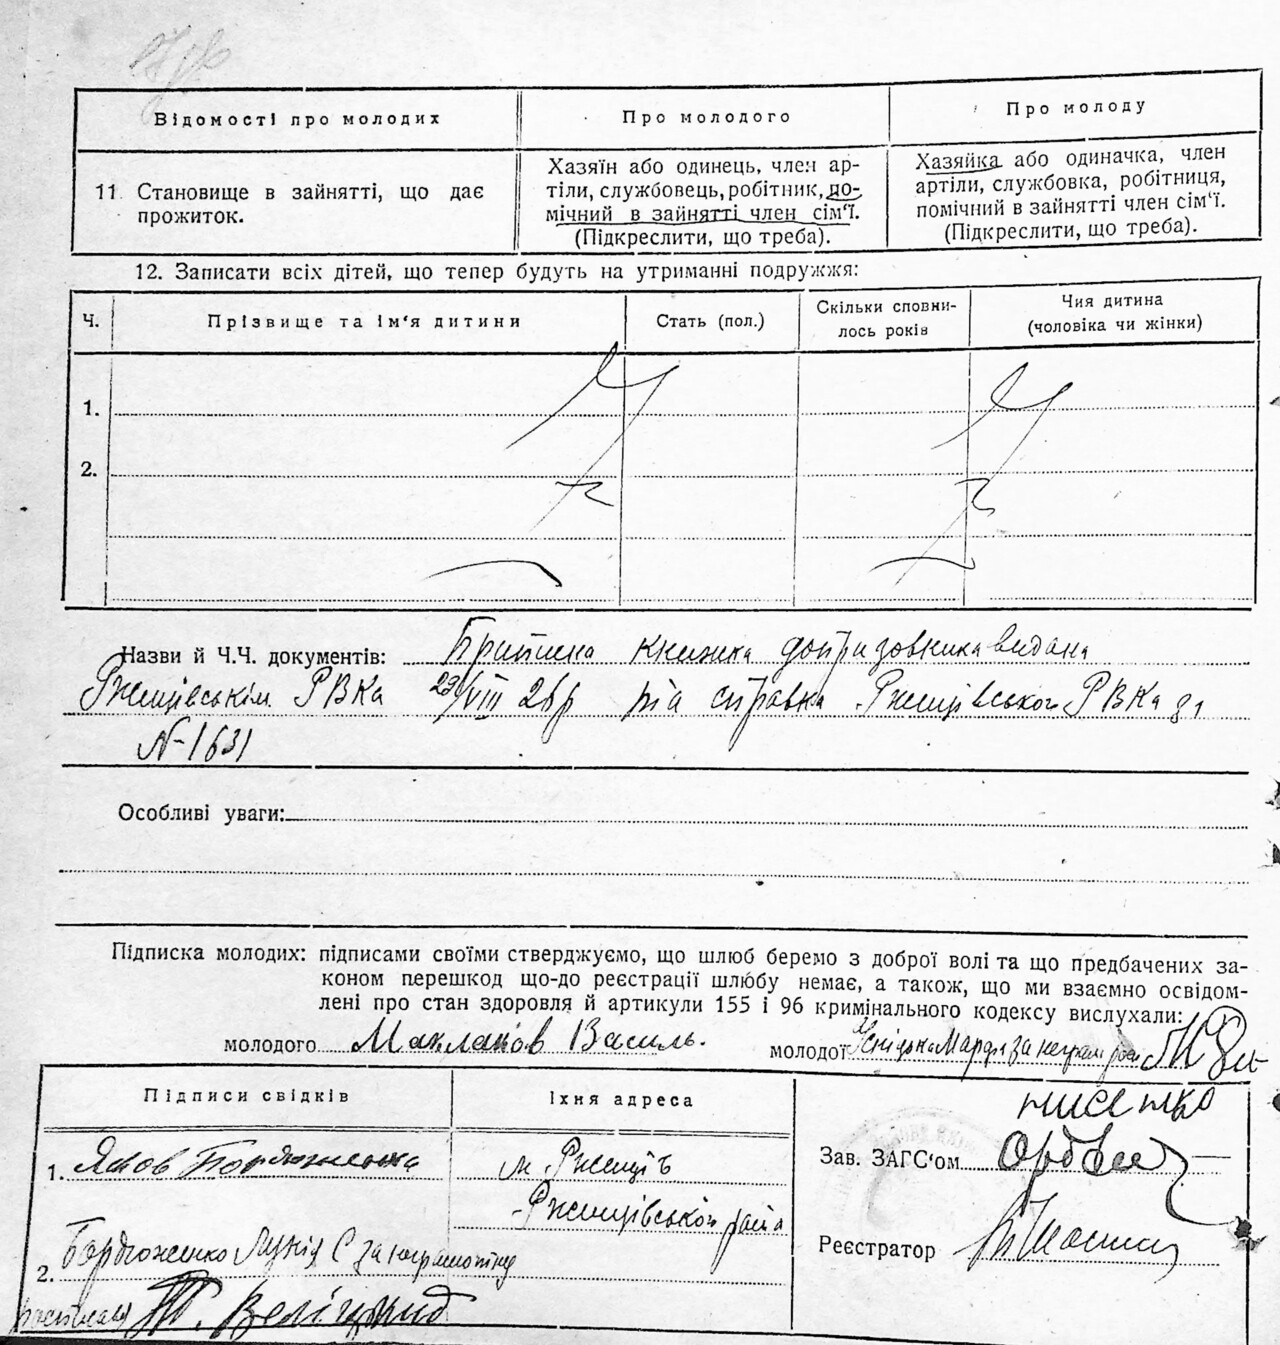 Відомості про молодих
Про молодого
Про молоду
11. Становище в зайнятті, що дає
прожиток.
Хазяїн або одинець, член ар-
тіли, службовець, робітник, по-
мічний в зайнятті член сім'ї.
(Підкреслити, що треба).
Хазяйка або одиначка, член
артіли, службовка, робітниця,
помічний в зайнятті член сім'ї.
(Підкреслити, що треба).
12. Записати всіх дітей, що тепер будуть на утриманні подружжя:
Ч.
Прізвище та ім'я дитини
Стать (пол.)
Скільки сповни-
лось років
Чия дитина
(чоловіка чи жінки)
1.
2.
Назви й Ч.Ч. документів: Приписна книжка допризовника видана
Ржищівським РВКа 29/VIII 28р та справка Ржищівського РВКа за
N-1631
Особливі уваги:
Підписка молодих: підписами своїми стверджуємо, що шлюб беремо з доброї волі та що предбачених за-
коном перешкод що-до реєстрації шлюбу немає, а також, що ми взаємно освідом-
лені про стан здоровля й артикули 155 і 96 кримінального кодексу вислухали:
молодого Маклаков Василь.
молодої Марфа за неграм
Підписи свідків
Їхня адреса
1. Яков
м. Ржищів
Ржищівського р-на
2. Бордюженко С за неграмотну
Зав. ЗАГС'ом
Реєстратор